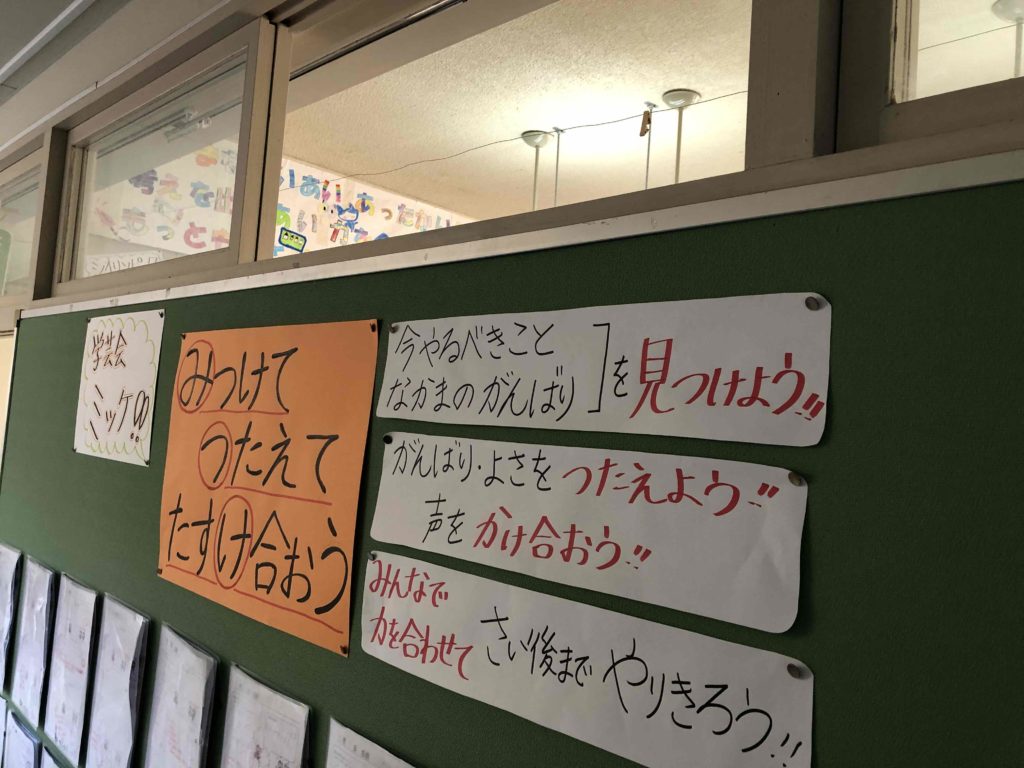 学芸会
ミッケ!!
みつけて
つたえて
たすけ合おう
今やるべきこと
なかまのがんばり
を見つけよう!!
がんばり・よさをつたえよう!!
声をかけ合おう!!
みんなで
力を合わせて
さい後までやりきろう!!
考えを出